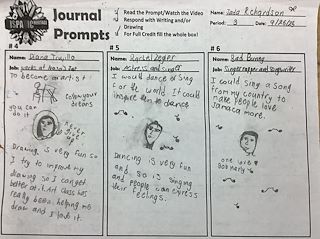 ISPA
Journal
Prompts
Read the Prompt/Watch the Video
Respond with Writing and/or
Drawing
For Full Credit fill the whole box!
Name: Jada Richardson
Period: 3 Date: 9/26/23
#4
Name: Diana Trujillo
Job: works at Nasa's Jet
To become an artist
you can
do it
follow your
dreams
never
give
up
Drawing is very fun so
I try to improve my
drawing so I can get
better at it. Art class has
really been helping me
draw and I love it.
#5
Name: Rachel Zegler
Job: Actress and singer
I would dance or sing
for the world. It would
inspire them to dance.
Dancing is very fun
and so is singing
and people can express
their feelings.
#6
Name: Bad Bunny
Job: Singer, rapper and songwriter
I would sing a song
from my country to
make people love
Jamaica more.
one love
Bob Marly